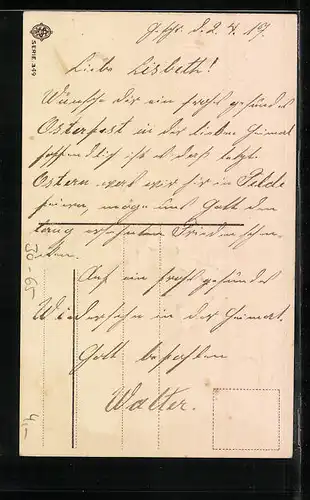 SERIE 349
Gschr. d. 2. 4. 17.
Liebe Lisbeth!
Wünsche dir ein froh gesundes
Osterfest in der lieben Heimat
hoffendlich ist es das letzte
Ostern was wir hir in Felde
feiern, möge uns Gott den
lang ersehnten Frieden schen-
ken.
Auf ein froh gesundes
Wiedersehn in der Heimat.
Gott befohlen
Walter.
30-65
4,-